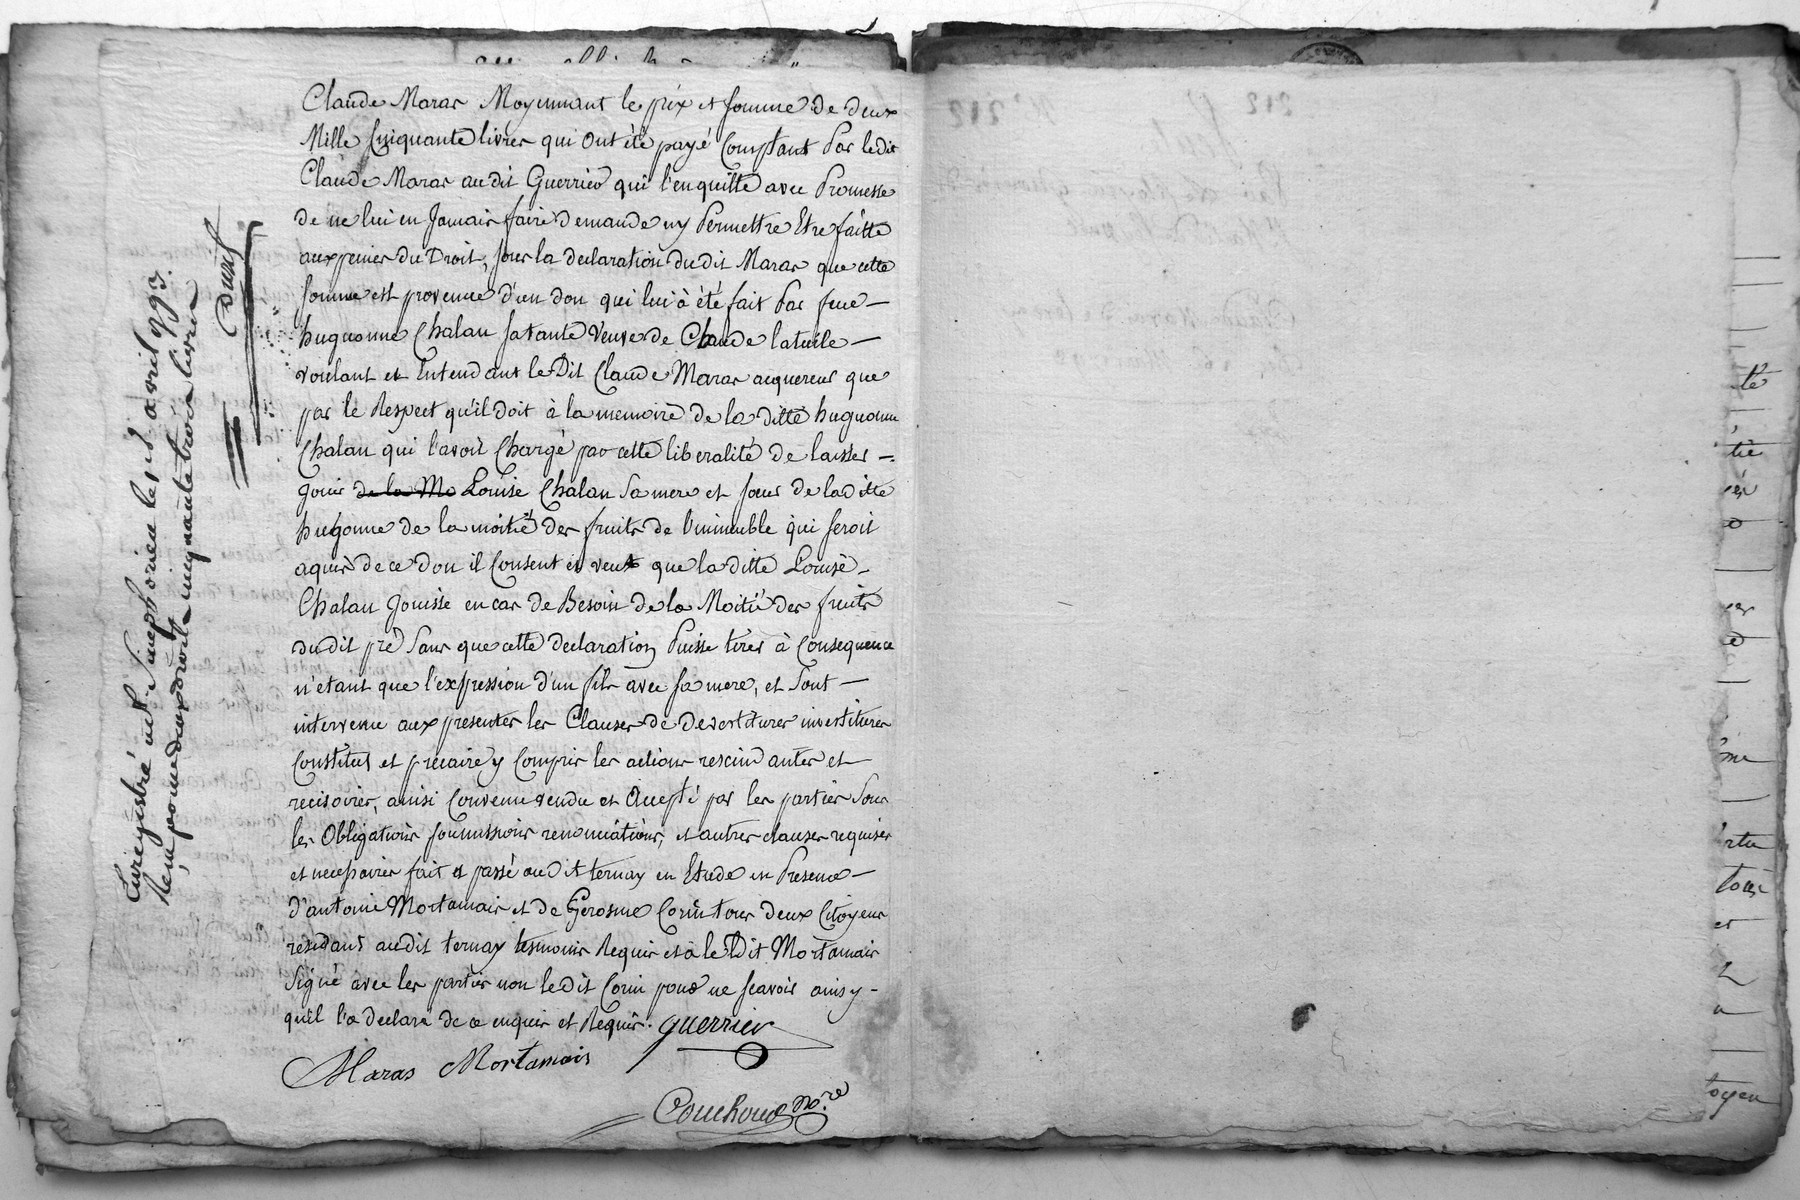 Claude Maras Moyennant le prix et somme de deux
Mille Cinquante livres qui ont été payé Comptant Par ledit
Claude Maras audit Guerrier qui l'en quitte avec Promesse
de ne lui en Jamais faire demande ny Permettre Etre faitte
aux peines du Droit, sous la declaration dudit Maras que cette
somme est provenue d'un don qui lui à été fait Par feue —
hugonne Chalan sa tante Veuve de Claude latuile —
voulant et Entendant le Dit Claude Maras acquereur que
par le Respect qu'il doit à la memoire de la ditte hugonne
Chalan qui l'avoit Chargé par cette liberalité de laisser —
Jouir de la Mo Louise Chalan sa mere et sœur de la ditte
hugonne de la moitié des fruits de l'immeuble qui seroit
aquis de ce don il Consent et veut que la ditte Louise —
Chalan Jouisse en cas de Besoin de la Moitié des fruits
du dit pré sans que cette declaration Puisse tirer à Consequence
n'etant que l'expression d'un fils avec sa mere, et sont —
intervenu aux presentes les Clauses de devestitures investitures
Constitut et precaire y Compris les actions rescindantes et —
recisoires, ainsi Convenu vendu et Accepté par les parties sous
les Obligations soumissions renonciations, et autres clauses requises
et necessaires fait et passé audit ternay en Etude en Presence —
d'antoine Mortamais et de Gerosme Corin tous deux Citoyens
residant audit ternay tesmoins Requis et à le Dit Mortamais
Signé avec les parties non le dit Corin pour ne scavoir ainsy —
qu'il l'a declaré de ce enquis et Requis. guerrier
Maras Mortamais
Couchoud no.re
Enregistré à St Simphorien le 18 avril 1793.
Reçu
livres
212
N° 212
te
tié
et
toyen